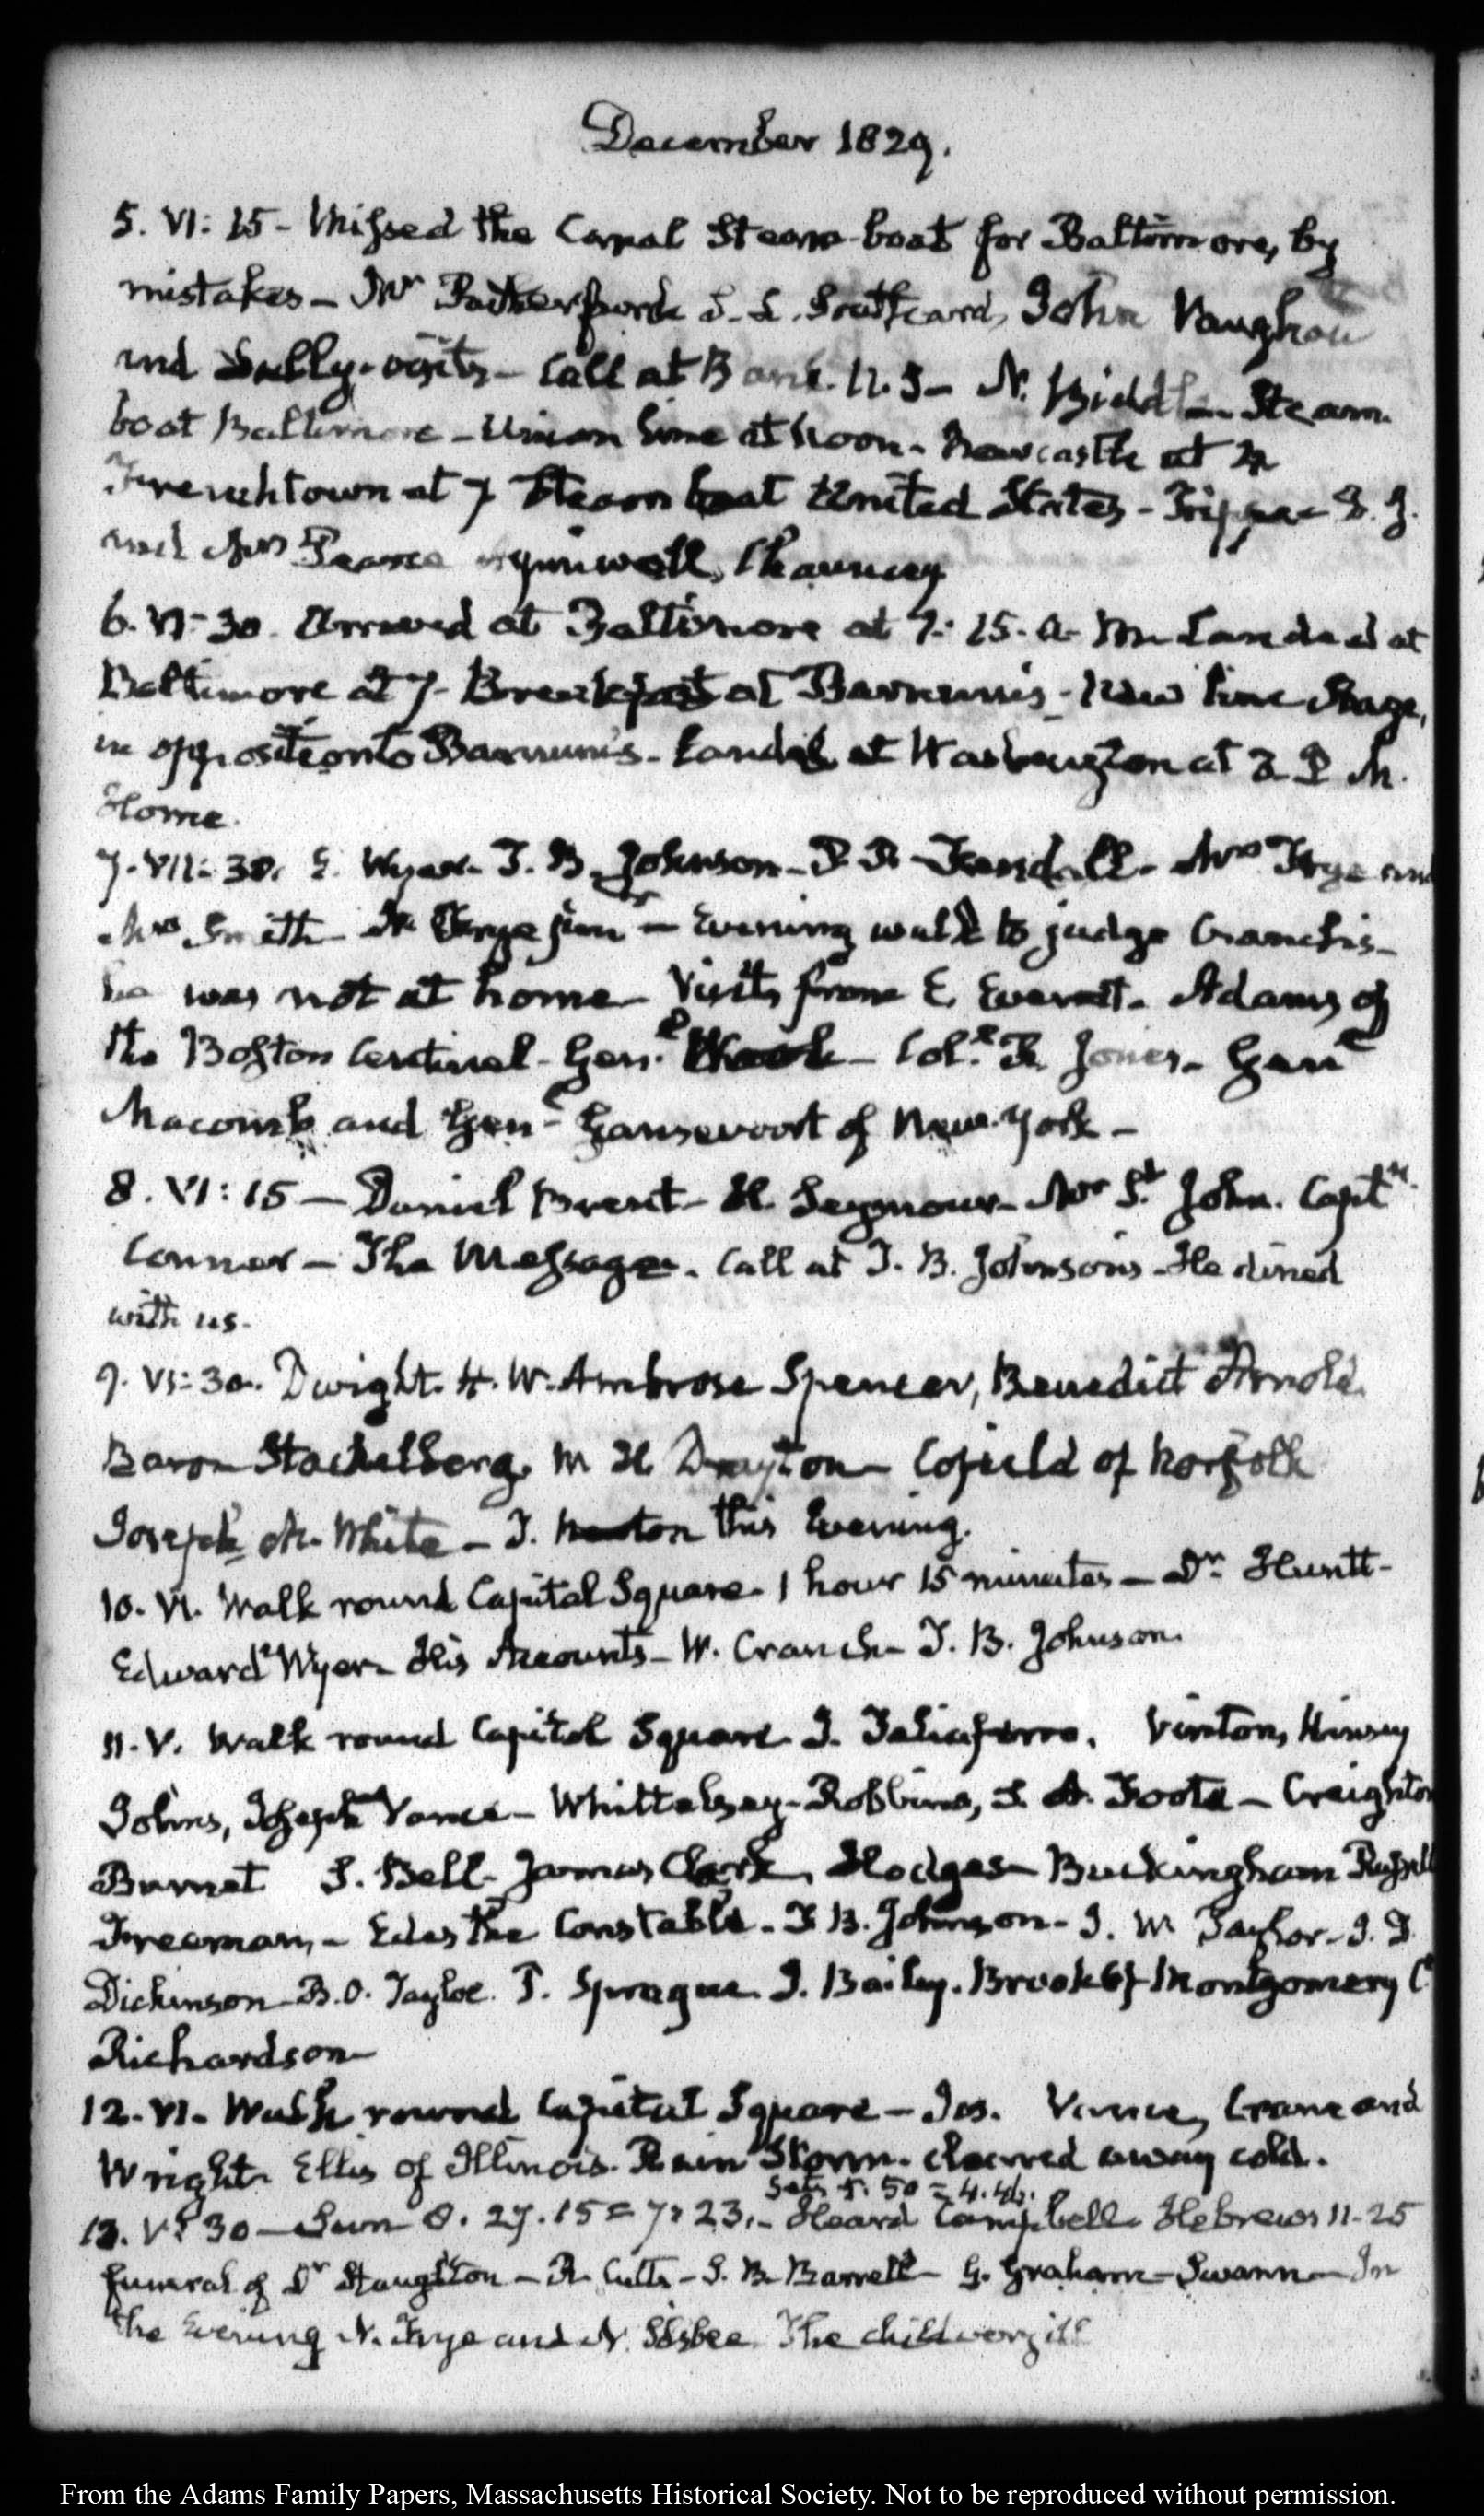 December 1829.
5. VI: 15 - Missed the Canal Steam-boat for Baltimore, by
mistake - Mr S. L. Southard, John Vaughan
and Sully. visits - Call at Bank. U.S - N. Biddle - Steam.
boat Baltimore - Union line at Noon - Newcastle at 4
Frenchtown at 7 Steam boat United States - Trippe
and Mrs Pearce Chauncey
6. VI-30. Arrived at Baltimore at 7. 15. A. M. Landed at
Baltimore at 7 - Breakfast at Barnum's - New line Stage,
in opposition to Barnum's. Landed at Washington at 3 P M.
Home.
7. VII: 30. E. Wyer - T. B. Johnson - P. R. Fendall - Mrs Frye and
Mrs Smith - N. Frye junr - Evening walk to judge Cranch's -
he was not at home - Visits from E. Everett. Adams of
the Boston Centinel - Genl. - Col. R. Jones. Genl
Macomb and Genl Gansevoort of New-York -
8. VI: 15 - Daniel Brent - H. Seymour - Mr St John. Captn
Connor - The Message. Call at T. B. Johnson's - He dined
with us.
9. VI: 30. Dwight. H. W. Ambrose Spencer, Benedict Arnold.
Baron Stackelberg. Drayton - Cofield of Norfolk
Joseph M. White - T. Newton this Evening.
10. VI. Walk round Capitol Square. 1 hour 15 minutes - Dr Huntt -
Edward Wyer - His Accounts - W. Cranch - T. B. Johnson.
11. V. Walk round Capitol Square J. Taliaferro. Vinton, Kinsey
Johns, Joseph Vance - Whittelsey - Robbins, S. A. Foote - Creighton
Burnet S. Bell - James Clark, Hodges - Buckingham Russell
Freeman, - Edes the Constable - T. B. Johnson - J. W. Taylor - J. D.
Dickinson B. O. Tayloe. P. Sprague J. Bailey. Brooke of Montgomery C
Richardson
12. VI. Walk round Capitol Square - Jos. Vance, Crane and
Wright - Ellis of Illinois. Rain Storm. cleared away cold.
Sets 5. 50 = 4. 46.
13. V: 30 - Sun 8. 27. 15 = 7: 23. - Heard Campbell Hebrews 11. 25
funeral of Dr Staughton - R. Cutts - S. B. Barrell - G. Graham - Swann - In
the Evening N. Frye and Silsbee. The child very ill